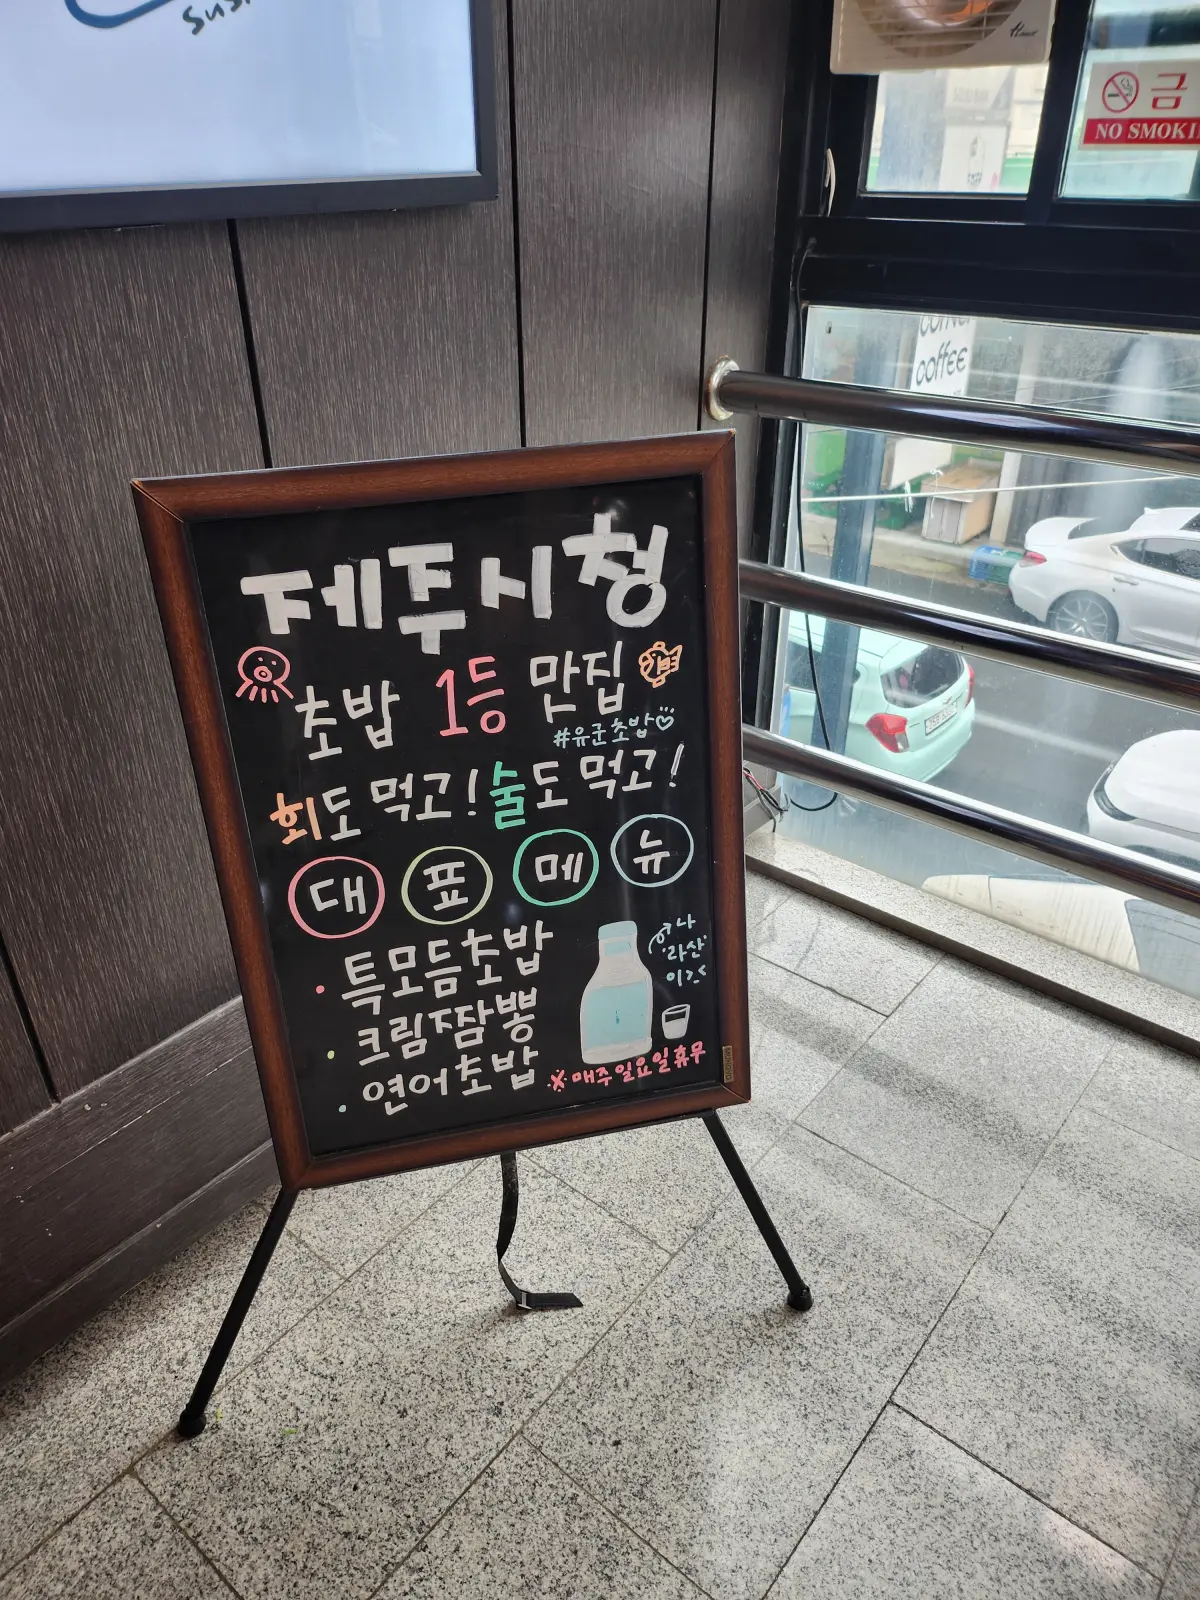 금
NO SMOKI
coffee
제주시청
초밥 1등 맛집
#유군초밥♡
회도 먹고! 술도 먹고!
대표메뉴
• 특모듬초밥
• 크림짬뽕
• 연어초밥
나
'라산'
이즈
※매주 일요일 휴무